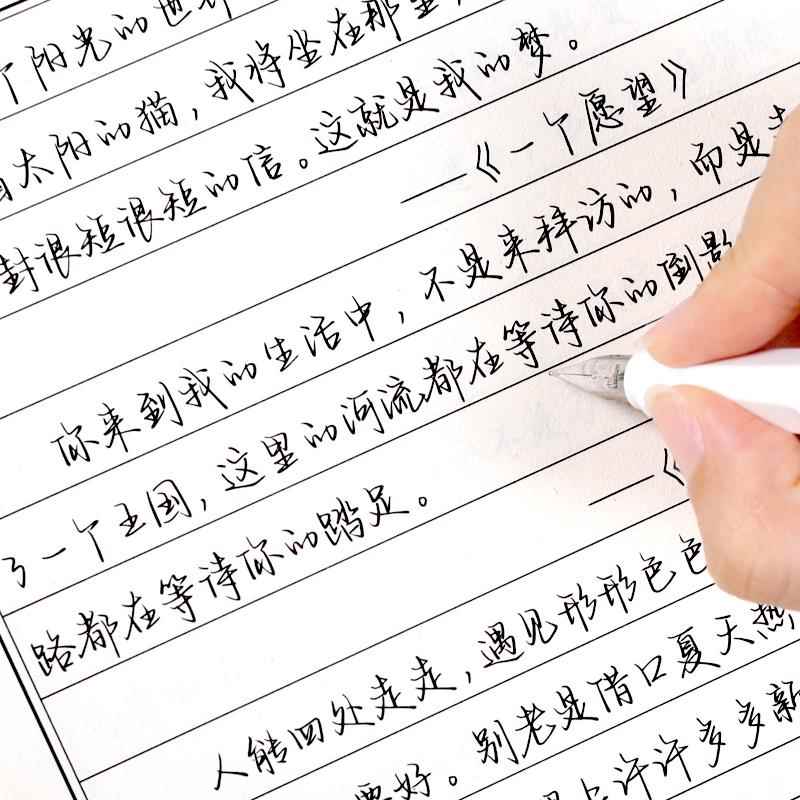 个阳光的世界
太阳的猫，我将坐在那里
封很短很短的信。这就是我的梦。
——《一个愿望》
你来到我的生活中，不是来拜访的，而是
了一个王国，这里的河流都在等待你的倒影
路都在等待你的踏足。
——《
人能四处走走，遇见形形色色
要好。别老是借口夏天热
许许多多新